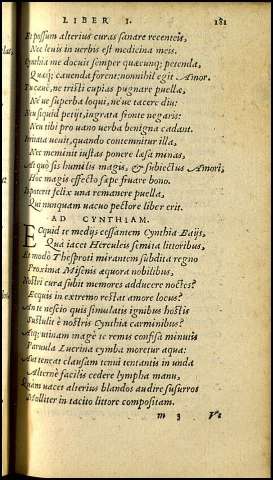 LIBER I. 181
Et possum alterius curas sanare recenteis,
Nec leuis in verbis est medicina meis.
Cynthia me docuit semper quæcunq; petenda,
Quæq; cauenda forent: nonnihil egit Amor.
Tu caue, ne tristi cupias pugnare puellæ,
Neue superba loqui, neue tacere diu:
Neu siquid petijt, ingrata fronte negaris:
Neu tibi pro vano verba benigna cadant.
Irritata venit, quando contemnitur illa,
Nec meminit iustas ponere læsa minas,
At quò sis humilis magis, & subiectus Amori,
Hoc magis effecto sæpe fruare bono.
Is poterit felix vna remanere puella,
Qui nunquam vacuo pectore liber erit.
AD CYNTHIAM.
Ecquid te medijs cessantem Cynthia Baijs,
Quà iacet Herculeis semita littoribus,
Et modò Thesproti mirantem subdita regno
Proxima Misenis æquora nobilibus,
Nostri cura subit memores adducere noctes?
Ecquis in extremo restat amore locus?
An te nescio quis simulatis ignibus hostis
Sustulit è nostris Cynthia carminibus?
Atq; vtinam magè te remis confisa minutis
Paruula Lucrina cymba moretur aqua:
Aut teneat clausam tenui tentantis in vnda
Alternæ facilis cedere lympha manu,
Quàm vacet alterius blandos audire susurros
Molliter in tacito littore compositam.
m 3 Vt